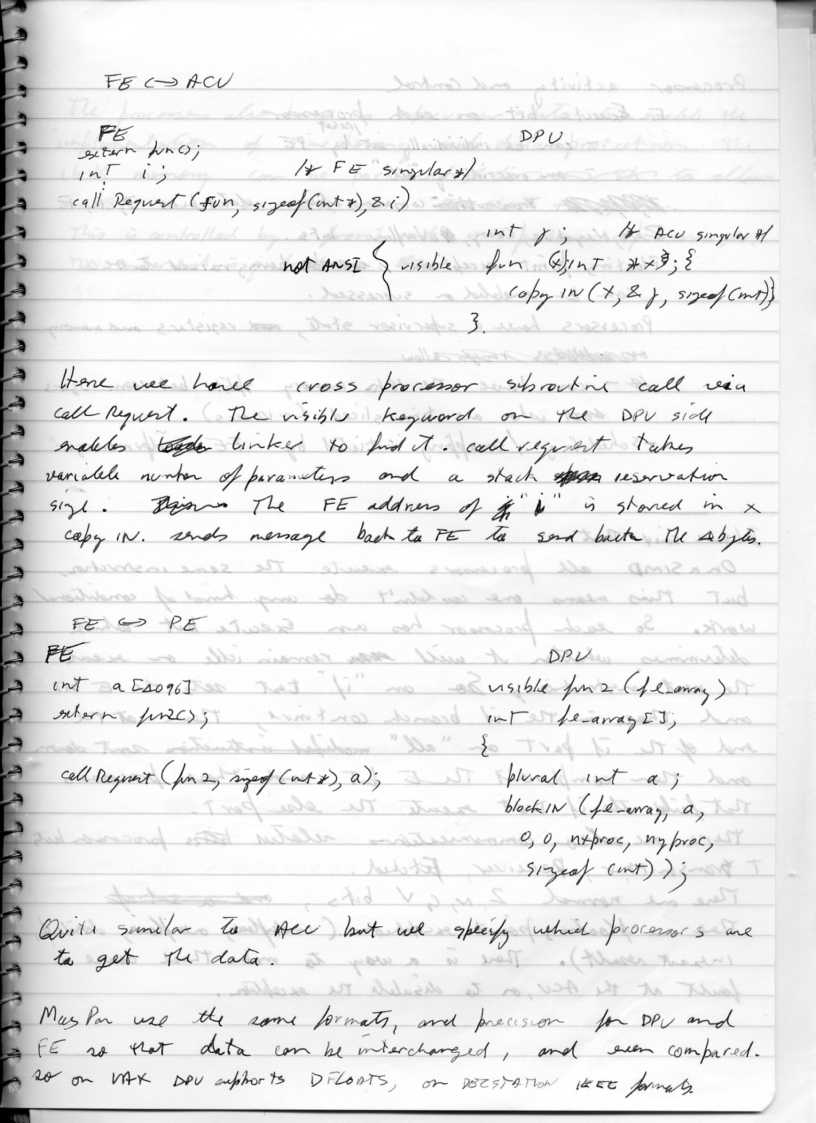 FE <-> ACU
FE DPU.
extern fun();
int i; /* FE singular */
call Request (fun, sizeof(int *), & i)
int j; /* ACU singular */
not ANSI { visible fun (x) int *x; {
copy IN (x, & j, sizeof(int)}
}.
Here we have cross processor subroutine call via
call Request. The visible keyword on the DPU side
enables linker to find it. call request takes
variable number of parameters and a stack reservation
size. The FE address of "i" is stored in x
copy IN. sends message back to FE to send back the 4 bytes.
FE <-> PE
FE DPU
int a [4096] visible fun 2 (fe_array)
extern fun2(); int fe_array[];
{
call Request (fun 2, sizeof (int *), a); plural int a;
blockIN (fe_array, a,
0, 0, nxproc, nyproc,
sizeof (int));
Quite similar to ACU but we specify which processors are
to get the data.
MasPar use the same formats, and precision for DPU and
FE so that data can be interchanged, and even compared.
so on VAX DPU supports DFLOATS, on DECSTATION IEEE formats.